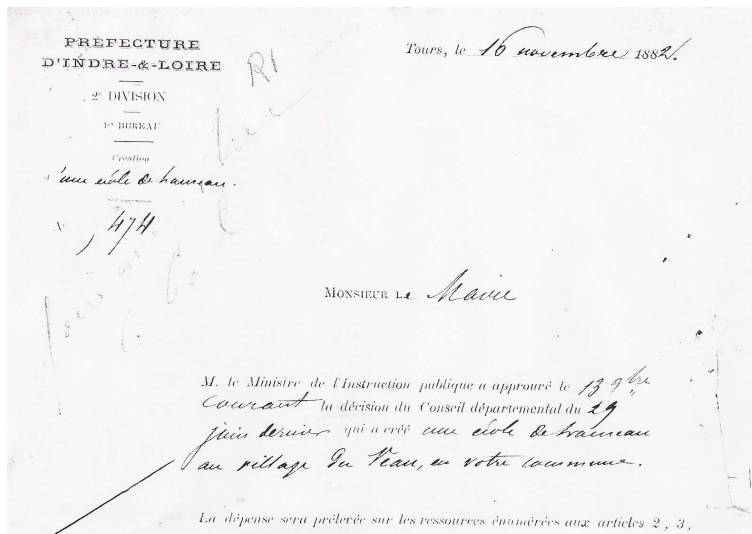 PRÉFECTURE
D'INDRE-&-LOIRE
2e DIVISION
1er BUREAU
Création
d'une école de hameau.
N° 474
R1
Tours, le 16 novembre 1882.
MONSIEUR Le Maire
M. le Ministre de l'Instruction publique a approuvé le 13 9bre
courant la décision du Conseil départemental du 29
juin dernier qui a créé une école de hameau
au village du Veau, en votre commune.
La dépense sera prélevée sur les ressources énumérées aux articles 2, 3,